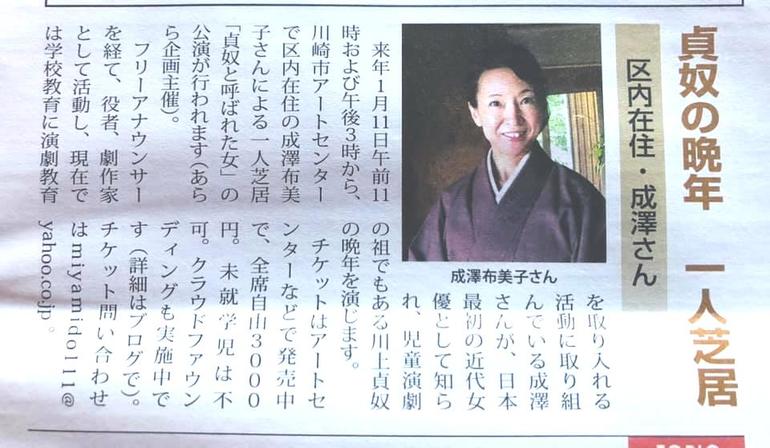 貞奴の晩年 一人芝居
区内在住・成澤さん
成澤布美子さん
来年1月11日午前11
時および午後3時から、
川崎市アートセンター
で区内在住の成澤布美
子さんによる一人芝居
「貞奴と呼ばれた女」の
公演が行われます(あら
ら企画主催)。
フリーアナウンサー
を経て、役者、劇作家
として活動し、現在で
は学校教育に演劇教育
を取り入れる
活動に取り組
んでいる成澤
さんが、日本
最初の近代女
優として知ら
れ、児童演劇
の祖でもある川上貞奴
の晩年を演じます。
チケットはアートセ
ンターなどで発売中
で、全席自由3000
円。未就学児は不
可。クラウドファウン
ディングも実施中で
す(詳細はブログで)。
チケット問い合わせ
はmiyamido111@
yahoo.co.jp。